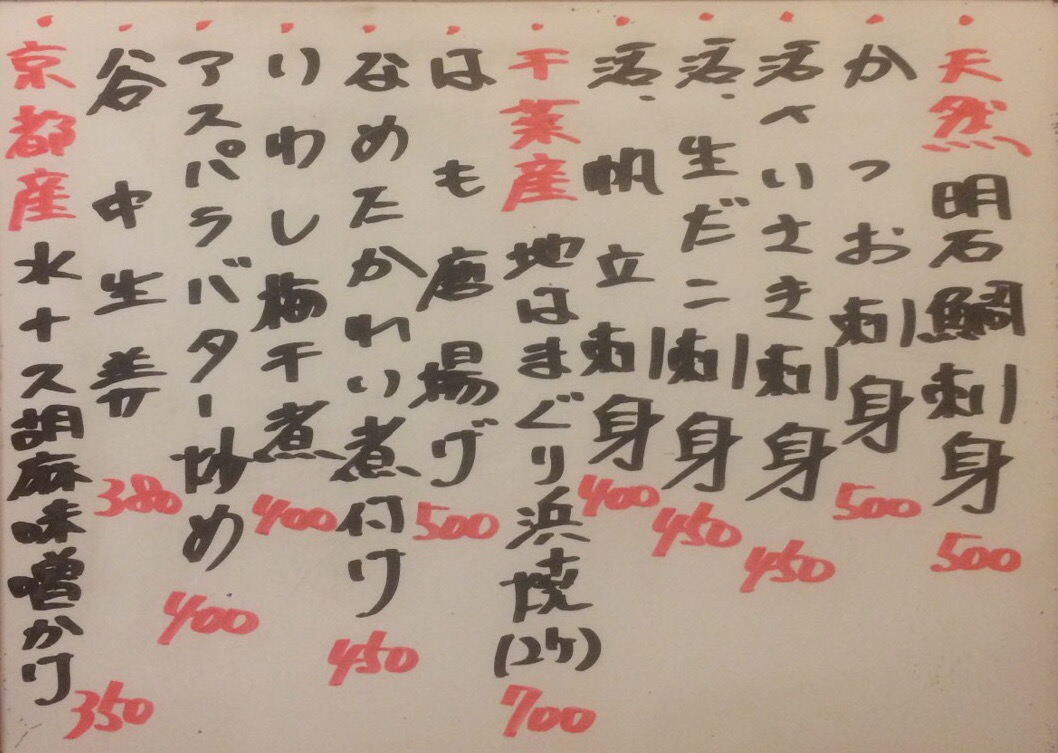 ・天然明石鯛刺身 500
・かつおお刺身 500
・活〆いさき刺身 450
・活、生だこ刺身 450
・活、帆立刺身 400
・千葉産地はまぐり浜焼(2ケ) 700
・はも唐揚げ 500
・なめたかれい煮付け 450
・いわし梅干煮 400
・アスパラバター炒め 400
・谷中生姜 380
・京都産水ナス胡麻味噌かけ 350